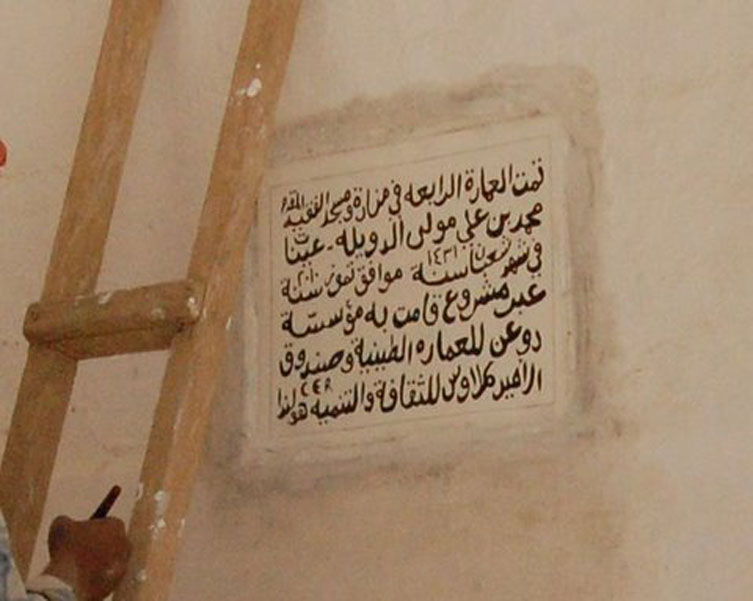 تمت العمارة الرابعه في مزارة ومسجد الفقيه المقدم
محمد بن علي مولى الدويله - عينات
في شهر شعبان سنة ١٤٣١ موافق تموز سنة ٢٠١٠
عبر مشروع قامت به مؤسسة
دوعن للعماره الطينية وصندوق
الامير كلاوس للثقافة والتنميه CER هولندا